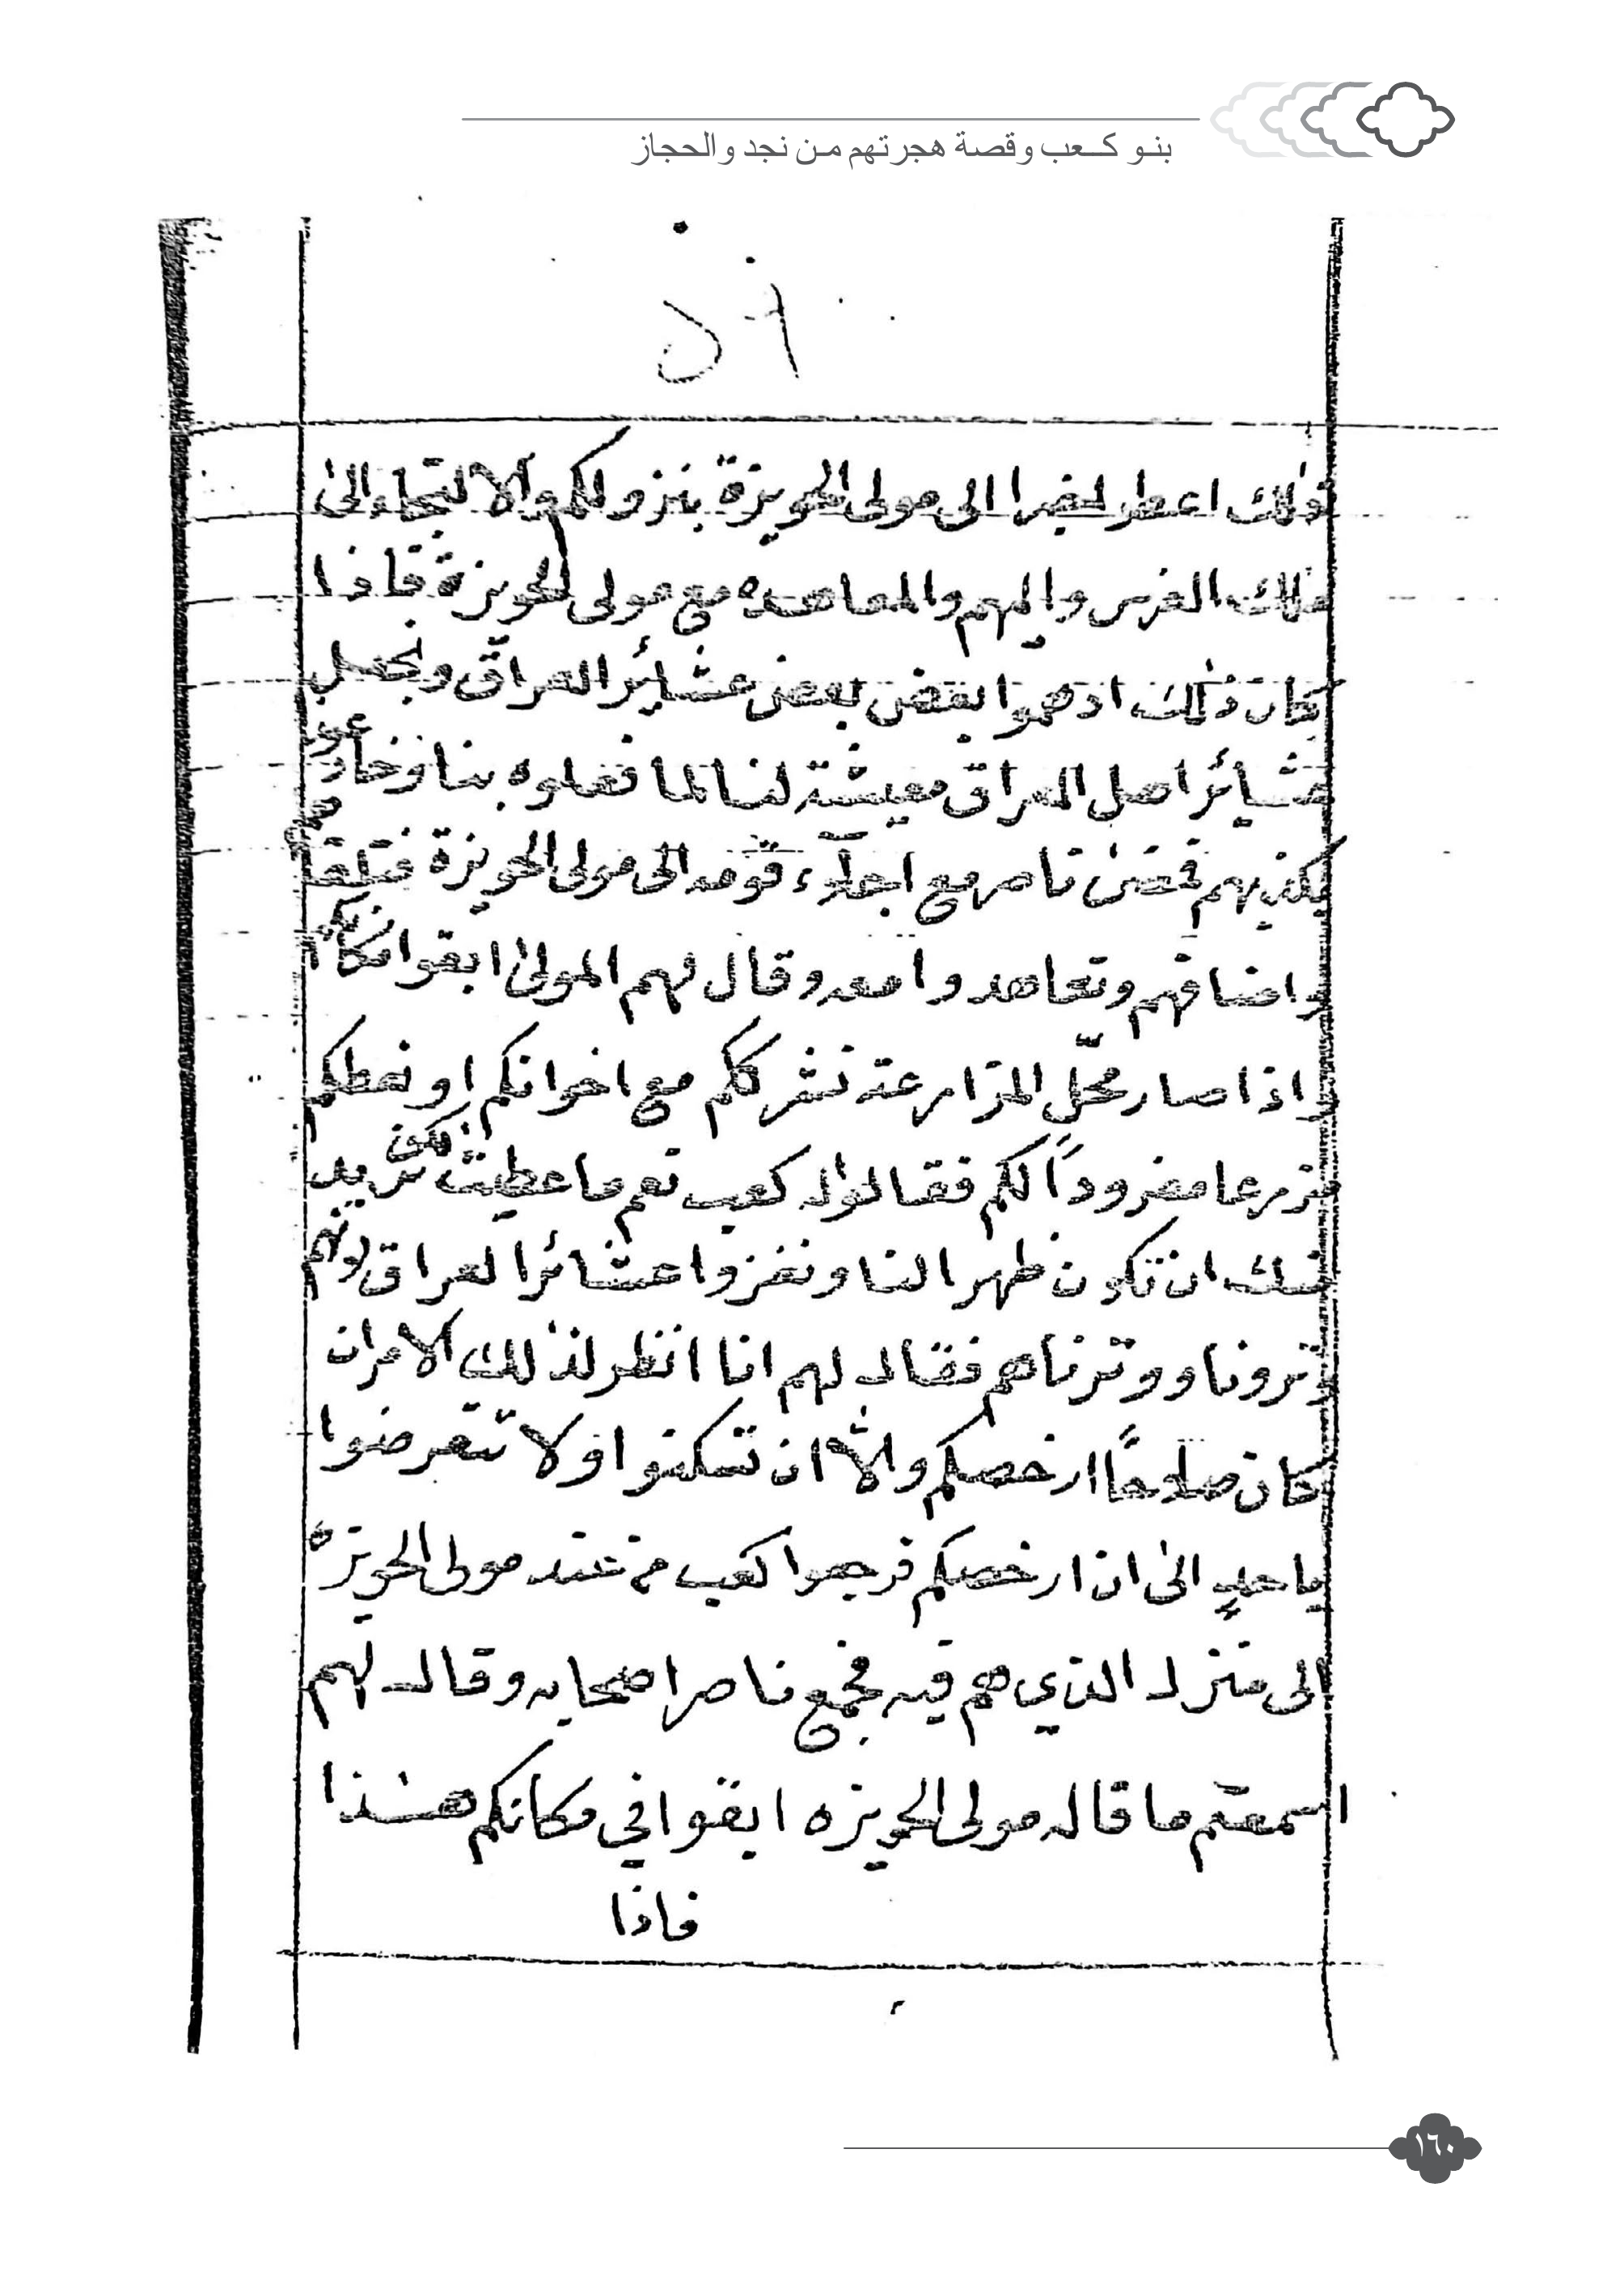 بنو كعب وقصة هجرتهم من نجد والحجاز
ذلك اعطر لخبرا الى مولى الحويزة بنزولكم والالتجاء الىٰ
ملك الفرس واليهم والمعاهده مع مولى الحويزة فاذا
كان ذلك ادهموا بعض بعض عشائر العراق ونجعل
عشائر اهل العراق معيشة لنا لما فعلوه بنا
فمضىٰ ناصر مع اجلآء قومه الى مولى الحويزة
واضافهم وتعاهدوا معه وقال لهم المولىٰ ابقوا
واذا صار محلّ المزارعة نشرككم مع اخوانكم او نعطكم
مزرعا مفروداً لكم فقالوا له كعب نعم ما عطيت لكن نريد
منك ان تكون ظهرا لنا ونغزوا عشائر العراق لانهم
وترونا ووترناهم فقال لهم انا انظر لذلك الامر ان
كان صلاحاً ارخصكم والاّ ان تسكنوا ولا تتعرضوا
باحدٍ الىٰ ان ارخصكم فرجعوا كعب من عند مولى الحويزه
الى منزل الذي هم فيه فجمع ناصر اصحابه وقال لهم
اسمعتم ما قاله مولى الحويزه ابقوا في مكانكم هٰذا
فاذا
١٦٠